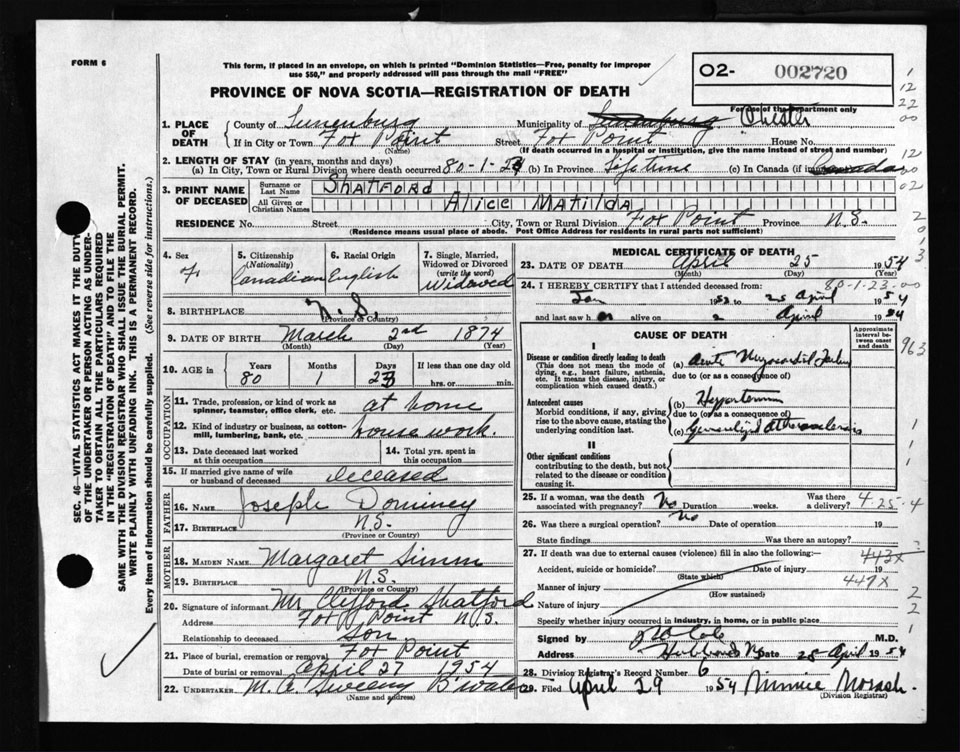 FORM 6
This form, if placed in an envelope, on which is printed "Dominion Statistics—Free, penalty for improper
use $50," and properly addressed will pass through the mail "FREE"
O2- 002720
For use of the Department only
PROVINCE OF NOVA SCOTIA—REGISTRATION OF DEATH
1. PLACE OF DEATH
County of Lunenburg Municipality of Lunenburg Chester
If in City or Town Fox Point Street Fox Point House No.
(Name) (If death occurred in a hospital or institution, give the name instead of street and number)
2. LENGTH OF STAY (in years, months and days)
(a) In City, Town or Rural Division where death occurred 80-1-23 (b) In Province Lifetime (c) In Canada (if immigrant) Canada
3. PRINT NAME OF DECEASED
Surname or Last Name Shatford
All Given or Christian Names Alice Matilda
RESIDENCE No. Street City, Town or Rural Division Fox Point Province N.S.
(Residence means usual place of abode. Post Office Address for residents in rural parts not sufficient)
4. Sex
F
5. Citizenship
(Nationality)
Canadian
6. Racial Origin
English
7. Single, Married,
Widowed or Divorced
(write the word)
Widowed
8. BIRTHPLACE N.S.
(Province or Country)
9. DATE OF BIRTH March 2nd 1874
(Month) (Day) (Year)
10. AGE in
Years Months Days If less than one day
80 1 23 hrs. or min.
OCCUPATION
11. Trade, profession or kind of work as
spinner, teamster, office clerk, etc. at home
12. Kind of industry or business, as cotton-
mill, lumbering, bank, etc. house work.
13. Date deceased last worked
at this occupation
14. Total yrs. spent in
this occupation
15. If married give name of wife
or husband of deceased deceased
FATHER
16. NAME Joseph Dominey
17. BIRTHPLACE N.S.
(Province or Country)
MOTHER
18. MAIDEN NAME Margaret Simm
19. BIRTHPLACE N.S.
(Province or Country)
20. Signature of informant Mr Clifford Shatford
Address Fox Point N.S.
Relationship to deceased son
21. Place of burial, cremation or removal Fox Point
Date of burial or removal April 27 1954
22. UNDERTAKER M. A. Sweeny B'water
(Name and address)
MEDICAL CERTIFICATE OF DEATH
23. DATE OF DEATH April 25 1954
(Month) (Day) (Year)
80-1-23-00
24. I HEREBY CERTIFY that I attended deceased from:
Jan 1952 to 25 April 1954
and last saw h er alive on 2 April 1954
CAUSE OF DEATH
Approximate interval between onset and death
I
Disease or condition directly leading to death
(This does not mean the mode of
dying, e.g., heart failure, asthenia,
etc. It means the disease, injury, or
complication which caused death.)
(a) Acute Myocardial
due to (or as a consequence of)
Antecedent causes
Morbid conditions, if any, giving
rise to the above cause, stating the
underlying condition last.
(b) Hypertension
due to (or as a consequence of)
(c) Generalized Atherosclerosis
II
Other significant conditions
contributing to the death, but not
related to the disease or condition
causing it.
25. If a woman, was the death
associated with pregnancy? No Duration weeks. Was there
a delivery? 4-25-4
26. Was there a surgical operation? No Date of operation 19
State findings Was there an autopsy?
27. If death was due to external causes (violence) fill in also the following:—
443X
Accident, suicide or homicide? Date of injury 19
(State which)
447X
Manner of injury
(How sustained)
Nature of injury
Specify whether injury occurred in industry, in home, or in public place
Signed by M.D.
Address Hubbards NS Date 28 April 1954
28. Division Registrar's Record Number 6
29. Filed April 29 1954 Minnie Morash.
(Division Registrar)
1
12
22
00
12
00
02
2
0
1
3
963
1
1
1
2
2
1
SEC. 46—VITAL STATISTICS ACT MAKES IT THE DUTY
OF THE UNDERTAKER OR PERSON ACTING AS UNDER-
TAKER TO OBTAIN ALL THE PARTICULARS REQUIRED
IN THE "REGISTRATION OF DEATH" AND TO FILE THE
SAME WITH THE DIVISION REGISTRAR WHO SHALL ISSUE THE BURIAL PERMIT.
WRITE PLAINLY WITH UNFADING INK. THIS IS A PERMANENT RECORD.
Every item of information should be carefully supplied. (See reverse side for instructions.)